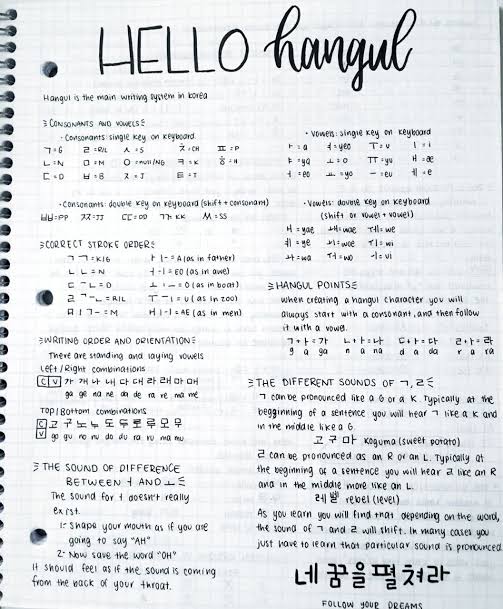 HELLO hangul
Hangul is the main writing system in korea
CONSONANTS AND VOWELS
· Consonants: single key on keyboard
ㄱ=G ㄹ=R/L ㅅ=S ㅊ=CH ㅍ=P
ㄴ=N ㅁ=M ㅇ=null/NG ㅋ=K ㅎ=H
ㄷ=D ㅂ=B ㅈ=J ㅌ=T
· Consonants: double key on keyboard (shift + consonant)
ㅃ=PP ㅉ=JJ ㄸ=DD ㄲ=KK ㅆ=SS
CORRECT STROKE ORDER
ㄱ ㄱ=K/G
ㄴ ㄴ=N
ㄷ=D
ㄹ=R/L
ㅁ=M
ㅏ=A (as in father)
ㅓ=EO (as in awe)
ㅗ=O (as in boat)
ㅜ=U (as in zoo)
ㅐ=AE (as in men)
WRITING ORDER AND ORIENTATION
There are standing and laying vowels
Left/Right combinations
C V 가 개 나 내 다 대 라 래 마 매
ga ge na ne da de ra re ma me
Top/Bottom combinations
C V 고 구 노 누 도 두 로 루 모 무
go gu no nu do du ro ru mo mu
THE SOUND OF DIFFERENCE
BETWEEN ㅓ AND ㅗ
The sound for ㅓ doesn't really
exist.
1- Shape your mouth as if you are
going to say "AH"
2- Now save the word "OH"
It should feel as if the sound is coming
from the back of your throat.
· Vowels: single key on keyboard
ㅏ=a ㅕ=yeo ㅜ=u ㅣ=i
ㅑ=ya ㅗ=o ㅠ=yu ㅐ=ae
ㅓ=eo ㅛ=yo ㅡ=eu ㅔ=e
· Vowels: double key on keyboard
(shift or vowel + vowel)
ㅒ=yae ㅙ=wae ㅞ=we
ㅖ=ye ㅚ=woe ㅟ=wi
ㅘ=wa ㅝ=wo ㅢ=vi
HANGUL POINTS
When creating a hangul character you will
always start with a consonant, and then follow
it with a vowel.
ㄱ+ㅏ=가 ㄴ+ㅏ=나 ㄷ+ㅏ=다 ㄹ+ㅏ=라
g a ga n a na d a da r a ra
THE DIFFERENT SOUNDS OF ㄱ, ㄹ
ㄱ can be pronounced like a G or a K. Typically at the
beggining of a sentence you will hear ㄱ like a K and
in the middle like a G.
고구마 Koguma (sweet potato)
ㄹ can be pronounced as an R or an L. Typically at
the beginning of a sentence you will hear ㄹ like an R
and in the middle more like an L.
레벨 rebel (level)
As you learn you will find that depending on the word,
the sound of ㄱ and ㄹ will shift. In many cases you
just have to learn that particular sound is pronounced.
네 꿈을 펼쳐라
FOLLOW YOUR DREAMS